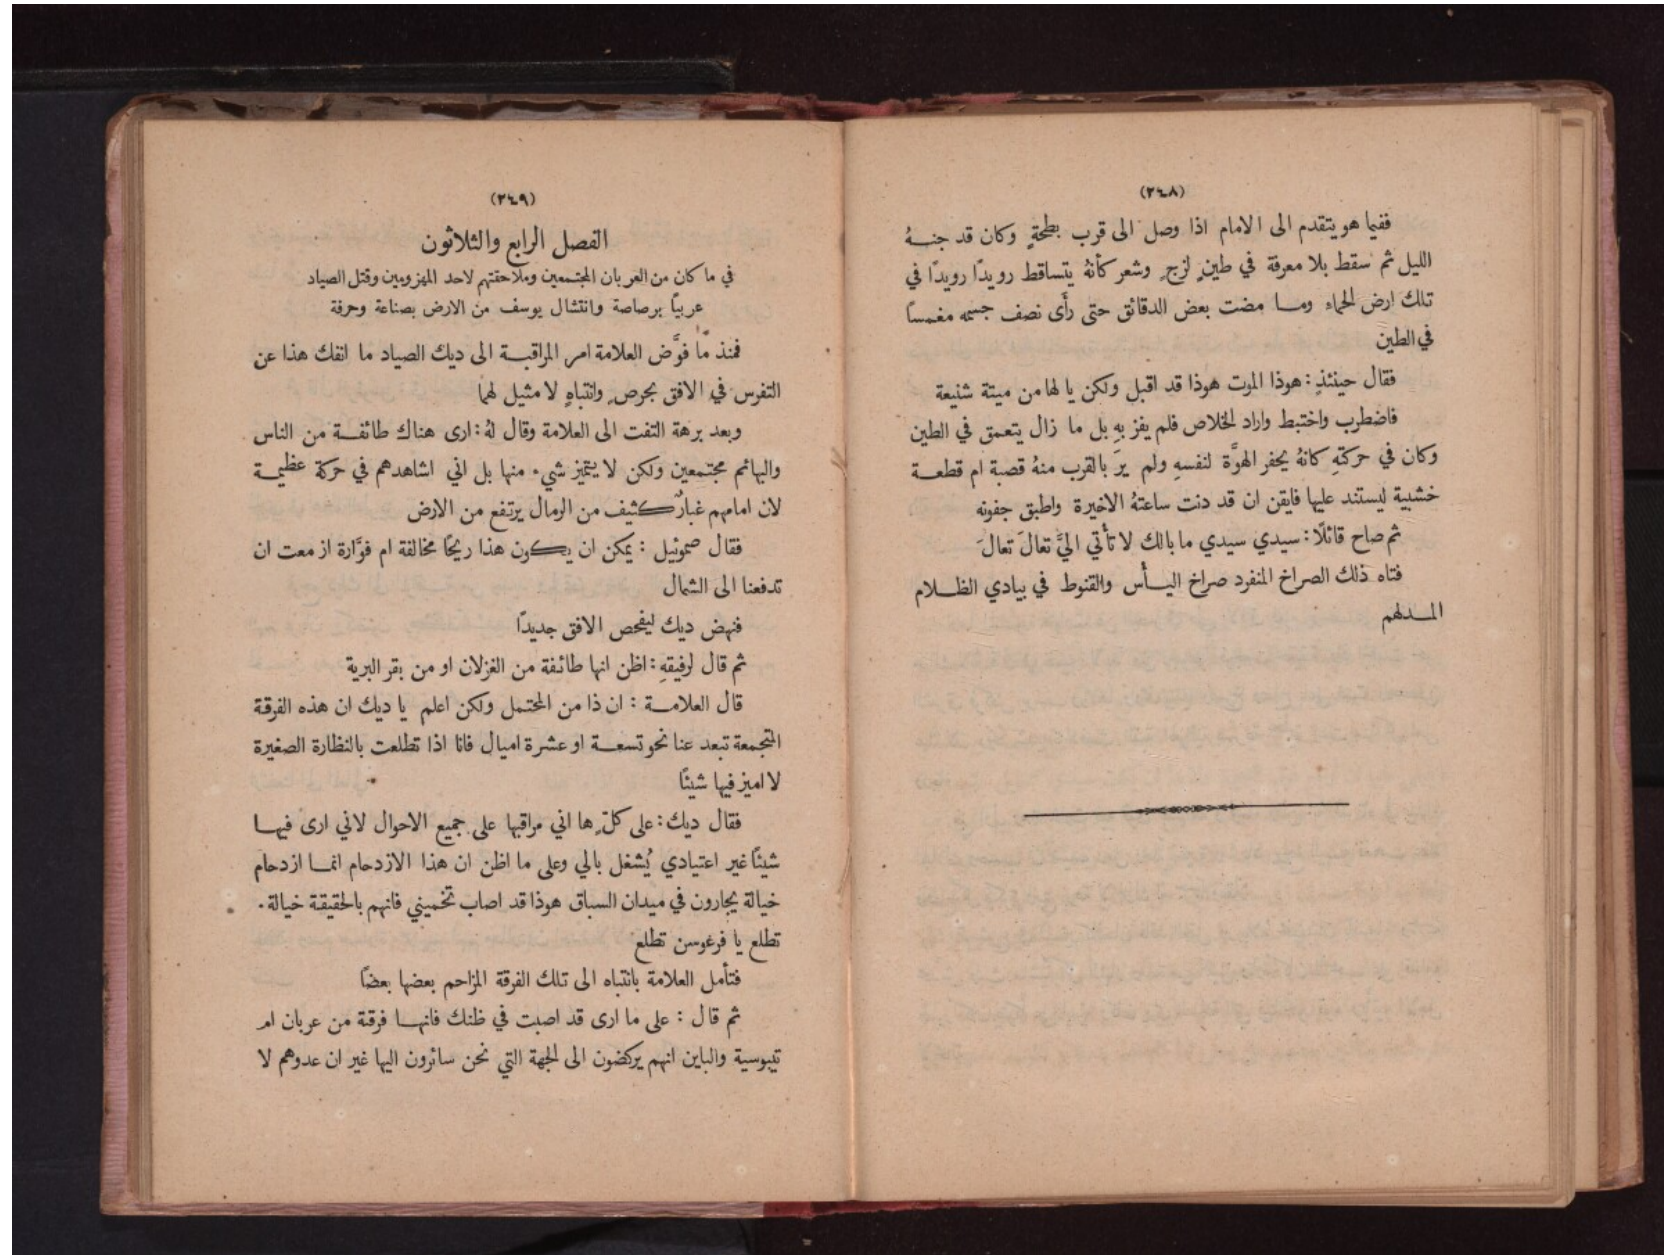 (٢٤٨)
ففيما هو يتقدم الى الامام اذا وصل الى قرب بطحةٍ وكان قد جنــهُ
الليل ثم سقط بلا معرفة في طينٍ لزجٍ وشعر كأنهُ يتساقط رويدًا رويدًا في
تلك ارض الحماء وما مضت بعض الدقائق حتى رأى نصف جسمه مغمسًا
في الطين
فقال حينئذٍ: هوذا الموت هوذا قد اقبل ولكن يا لها من ميتة شنيعة
فاضطرب واختبط واراد الخلاص فلم يفز بهِ بل ما زال يتعمق في الطين
وكان في حركتهِ كانهُ يحفر الهوَّة لنفسهِ ولم يرَ بالقرب منهُ قصبة ام قطعـة
خشبية ليستند عليها فايقن ان قد دنت ساعتهُ الاخيرة واطبق جفونه
ثم صاح قائلًا: سيدي سيدي ما بالك لا تأتي اليَّ تعالَ تعالَ
فتاه ذلك الصراخ المنفرد صراخ اليـأس والقنوط في بيادي الظـلام
المـدلهم
(٢٤٩)
الفصل الرابع والثلاثون
في ما كان من العربان المجتمعين وملاحقتهم لاحد المهزومين وقتل الصياد
عربيًا برصاصة وانتشال يوسف من الارض بصناعة وحرفة
فمنذ مَّا فوَّض العلامة امر المراقبـة الى ديك الصياد ما انفك هذا عن
التفرس في الافق بحرصٍ وانتباهٍ لا مثيل لهما
وبعد برهة التفت الى العلامة وقال لهُ: ارى هناك طائفـة من الناس
والبهائم مجتمعين ولكن لا يتميز شيء منها بل اني اشاهدهم في حركة عظيمـة
لان امامهم غبارٌ كثيف من الرمال يرتفع من الارض
فقال صموئيل : يمكن ان يكون هذا ريحًا مخالفة ام فوَّارة ازمعت ان
تدفعنا الى الشمال
فنهض ديك ليفحص الافق جديدًا
ثم قال لرفيقهِ: اظن انها طائفة من الغزلان او من بقر البرية
قال العلامـة : ان ذا من المحتمل ولكن اعلم يا ديك ان هذه الفرقة
المتجمعة تبعد عنا نحو تسعـة او عشرة اميال فانا اذا تطلعت بالنظارة الصغيرة
لا اميز فيها شيئًا
فقال ديك: على كلٍّ ها اني مراقبها على جميع الاحوال لاني ارى فيهـا
شيئًا غير اعتيادي يُشغل بالي وعلى ما اظن ان هذا الازدحام انمـا ازدحام
خيالة يجارون في ميدان السباق هوذا قد اصاب تخميني فانهم بالحقيقة خيالة.
تطلع يا فرغوسن تطلع
فتأمل العلامة بانتباه الى تلك الفرقة المزاحم بعضها بعضًا
ثم قال : على ما ارى قد اصبت في ظنك فانهـا فرقة من عربان ام
تيبوسية والباين انهم يركضون الى الجهة التي نحن سائرون اليها غير ان عدوهم لا